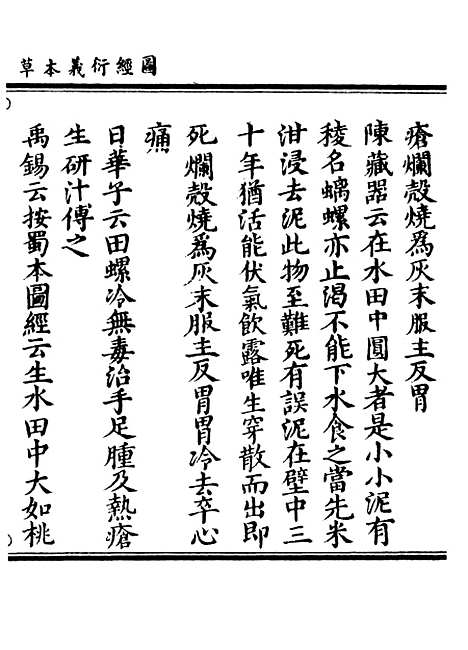 圖經衍義本草
瘡爛殼燒為灰末服主反胃
陳藏器云在水田中圓大者是小小泥有
稜名螭螺亦止渴不能下水食之當先米
泔浸去泥此物至難死有誤泥在壁中三
十年猶活能伏氣飲露唯生穿散而出即
死爛殼燒為灰末服主反胃胃冷去卒心
痛
日華子云田螺冷無毒治手足腫及熱瘡
生研汁傅之
禹錫云按蜀本圖經云生水田中大如桃